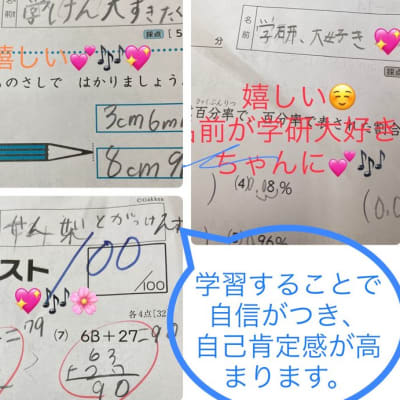 学けん大すきたく
採点
嬉しい💕🎶💖
ものさしで はかりましょう
3cm6m
8cm9
分
名前
学研、大好き💖
採点
嬉しい☺️
ひゃくぶんりつ
百分率で、百分率で表された割合
名前が学研大好き
ちゃんに💕🎶
(4) 0.08%
(0.0
96%
©Gakken
せんせいとがっけんす
スト
100
/100
💖🎶🌸
各4点[32
=79
(7) 63+27=90
63
+27
90
学習することで
自信がつき、
自己肯定感が高
まります。